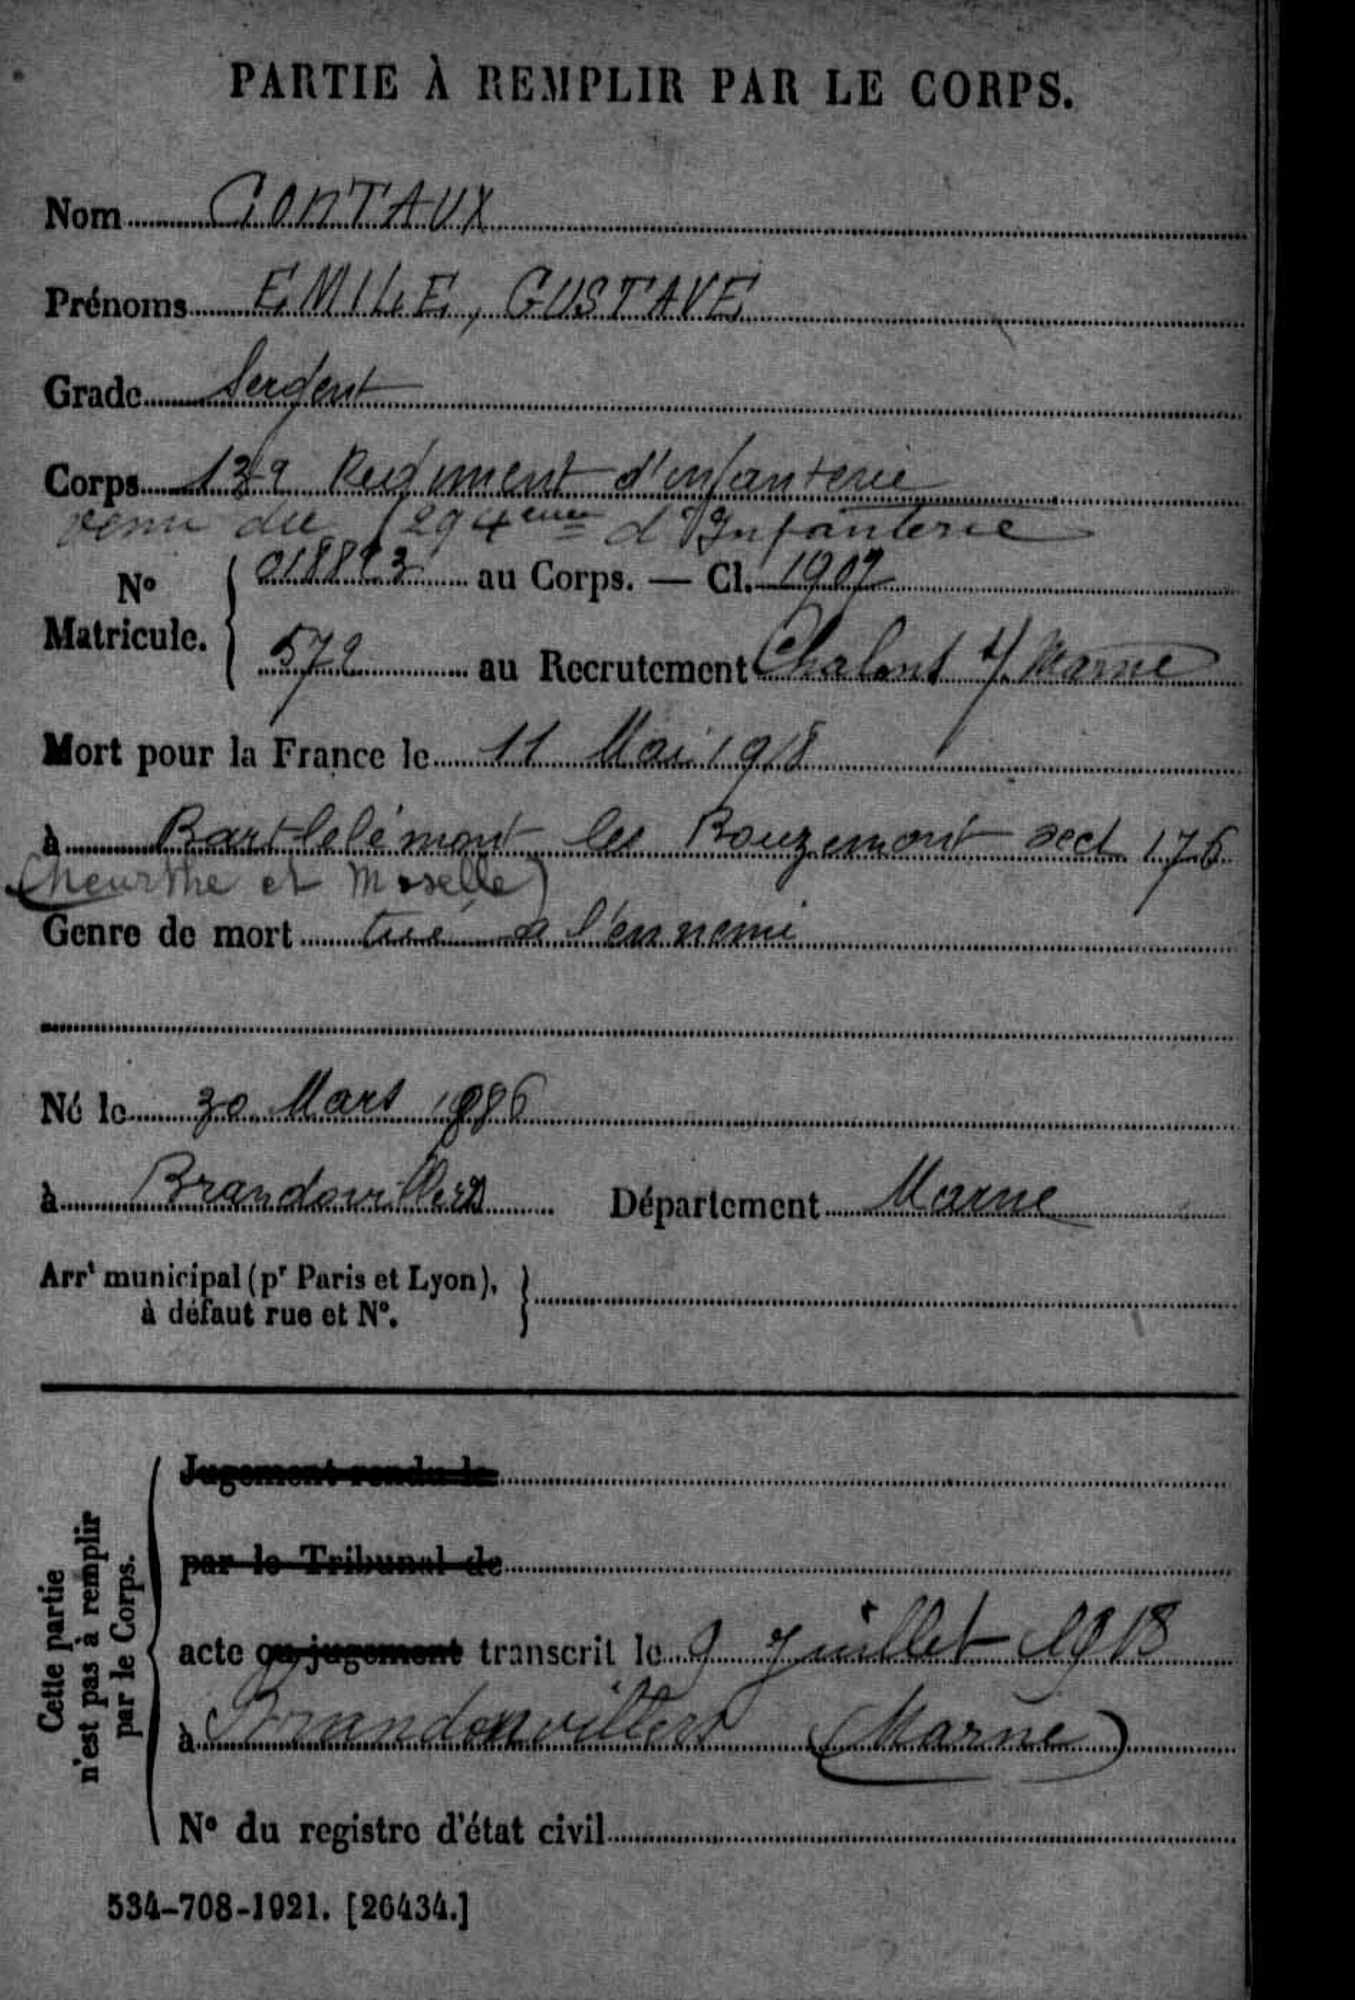 PARTIE À REMPLIR PAR LE CORPS.
Nom GONTAUX
Prénoms EMILE, GUSTAVE
Grade Sergent
Corps 139 Regiment d'infanterie
venu du 294eme d'Infanterie
No Matricule. 018893 au Corps. — Cl. 1907
572 au Recrutement Chalons s/ Marne
Mort pour la France le 11 Mai 1918
à Barthelémont les Bouzemont sect 176
(Meurthe et Moselle)
Genre de mort tué à l'ennemi
Né le 30 Mars 1886
à Brandonvillers Département Marne
Arrt municipal (pr Paris et Lyon),
à défaut rue et No.
Cette partie
n'est pas à remplir
par le Corps.
Jugement rendu le
par le Tribunal de
acte ou jugement transcrit le 9 Juillet 1918
à Brandonvillers (Marne)
No du registre d'état civil
534-708-1921. [26434.]